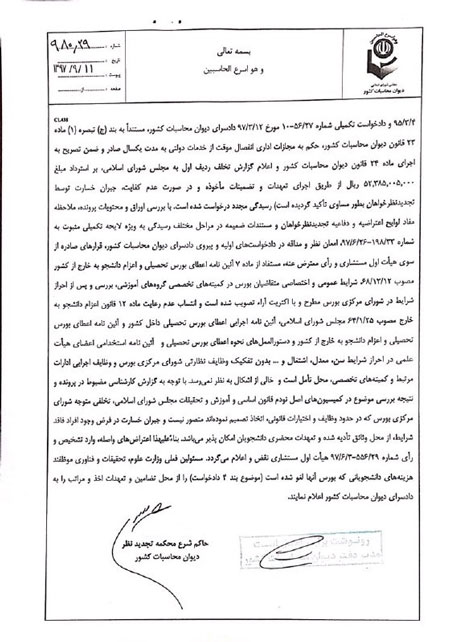 بسمه تعالی
و هو اسرع الحاسبین
شماره ۹۸۰۲۹
تاریخ ۱۳۹۷/۹/۱۱
پیوست
صفحه
دیوان محاسبات کشور
۹۵/۳/۴ و دادخواست تکمیلی شماره ۵۶/۲۷-۱۰ مورخ ۹۷/۳/۱۲ دادسرای دیوان محاسبات کشور، مستنداً به بند (ج) تبصره (۱) ماده
۲۳ قانون دیوان محاسبات کشور، حکم به مجازات اداری انفصال موقت از خدمات دولتی به مدت یکسال صادر و ضمن تصریح به
اجرای ماده ۲۴ قانون دیوان محاسبات کشور و اعلام گزارش تخلف ردیف اول به مجلس شورای اسلامی، بر استرداد مبلغ
۵۲,۳۸۵,۰۰۵,۰۰۰ ریال از طریق اجرای تعهدات و تضمینات مأخوذه و در صورت عدم کفایت، جبران خسارت توسط
تجدیدنظرخواهان بطور مساوی تأکید گردیده است) رسیدگی مجدد درخواست شده است. با بررسی اوراق و محتویات پرونده، ملاحظه
مفاد لوایح اعتراضیه و دفاعیه تجدیدنظرخواهان و مستندات ضمیمه در مراحل مختلف رسیدگی به ویژه لایحه تکمیلی مثبوت به
شماره ۱۹۸/۲۳-۹۷/۶/۲۶، امعان نظر و مداقه در دادخواست‌های اولیه و پیروی دادسرای دیوان محاسبات کشور، قرارهای صادره از
سوی هیأت اول مستشاری و رأی معترض عنه، مستفاد از ماده ۷ آئین نامه اعطای بورس تحصیلی و اعزام دانشجو به خارج از کشور
مصوب ۶۸/۱۳/۱۲، شرایط عمومی و اختصاصی متقاضیان بورس در کمیته‌های تخصصی گروه‌های آموزشی، بررسی و پس از احراز
شرایط در شورای مرکزی بورس مطرح و با اکثریت آراء، تصویب شده است و انتساب عدم رعایت ماده ۱۲ قانون اعزام دانشجو به
خارج مصوب ۶۴/۱/۲۵ مجلس شورای اسلامی، آئین نامه اجرایی اعطای بورس تحصیلی داخل کشور و آئین نامه اعطای بورس
تحصیلی و اعزام دانشجو به خارج از کشور و دستورالعمل‌های نحوه اعطای بورس تحصیلی و آئین نامه استخدامی اعضای هیأت
علمی در احراز شرایط سن، معدل، اشتغال و ... بدون تفکیک وظایف نظارتی شورای مرکزی بورس و وظایف اجرایی ادارات
مرتبط و کمیته‌های تخصصی، محل تأمل است و خالی از اشکال به نظر نمی‌رسد. با توجه به گزارش کارشناسی مضبوط در پرونده و
نتیجه بررسی موضوع در کمیسیون‌های اصل نودم قانون اساسی و آموزش و تحقیقات مجلس شورای اسلامی، تخلفی متوجه شورای
مرکزی بورس که در حدود وظایف و اختیارات قانونی، اتخاذ تصمیم نموده‌اند متصور نیست و جبران خسارت در فرض وجود افراد فاقد
شرایط، از محل وثائق تأدیه شده و تعهدات محضری دانشجویان امکان پذیر می‌باشد. بناءً‌علیهذا اعتراض‌های واصله، وارد تشخیص و
رأی شماره ۵۵۶/۲۹-۹۷/۶/۳ هیأت اول مستشاری نقض و اعلام می‌گردد. مسئولین فعلی وزارت علوم، تحقیقات و فناوری موظفند
هزینه‌های دانشجویانی که بورس آنها لغو شده است (موضوع بند ۴ دادخواست) را از محل تضامین و تعهدات اخذ و مراتب را به
دادسرای دیوان محاسبات کشور اعلام نمایند.
حاکم شرع محکمه تجدید نظر
دیوان محاسبات کشور